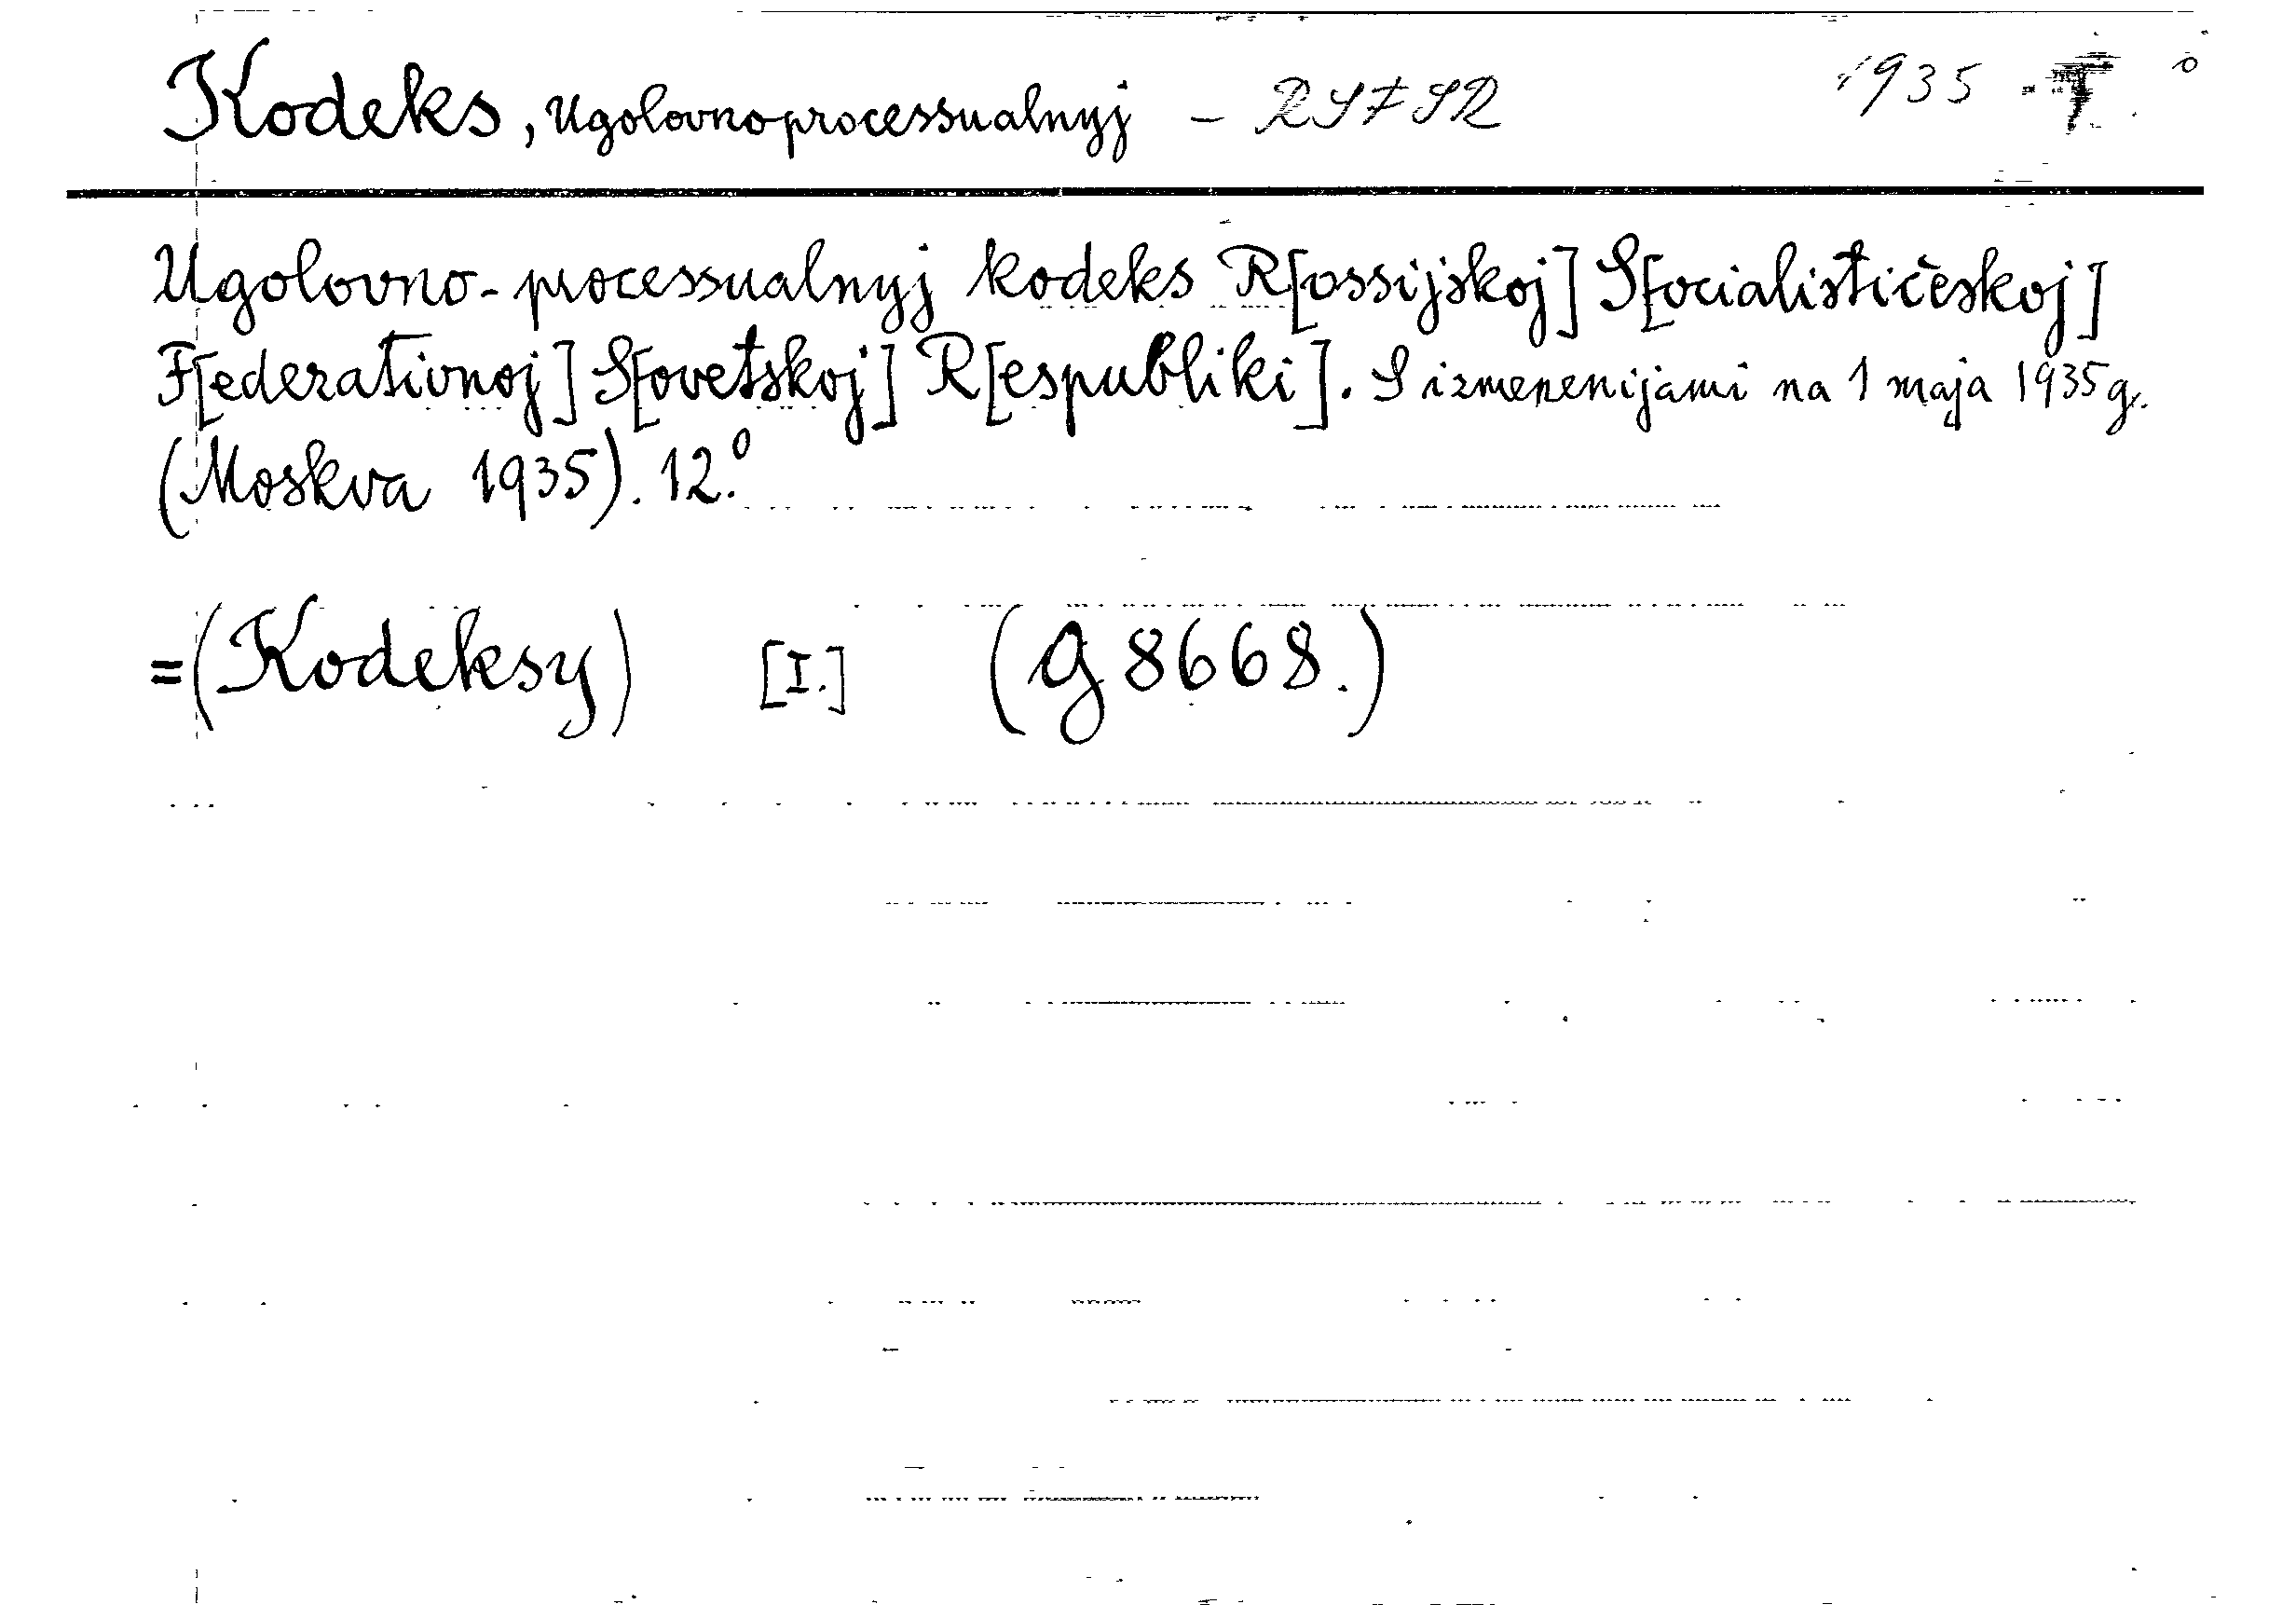 Kodeks, Ugolovnoprocessualnyj – RSFSR 1935
Ugolovno-processualnyj kodeks R[ossijskoj] S[ocialističeskoj]
F[ederativnoj] S[ovetskoj] R[espubliki]. S izmenenijami na 1 maja 1935 g.
(Moskva 1935). 12.º
=(Kodeksy) [I.] (G 8668.)